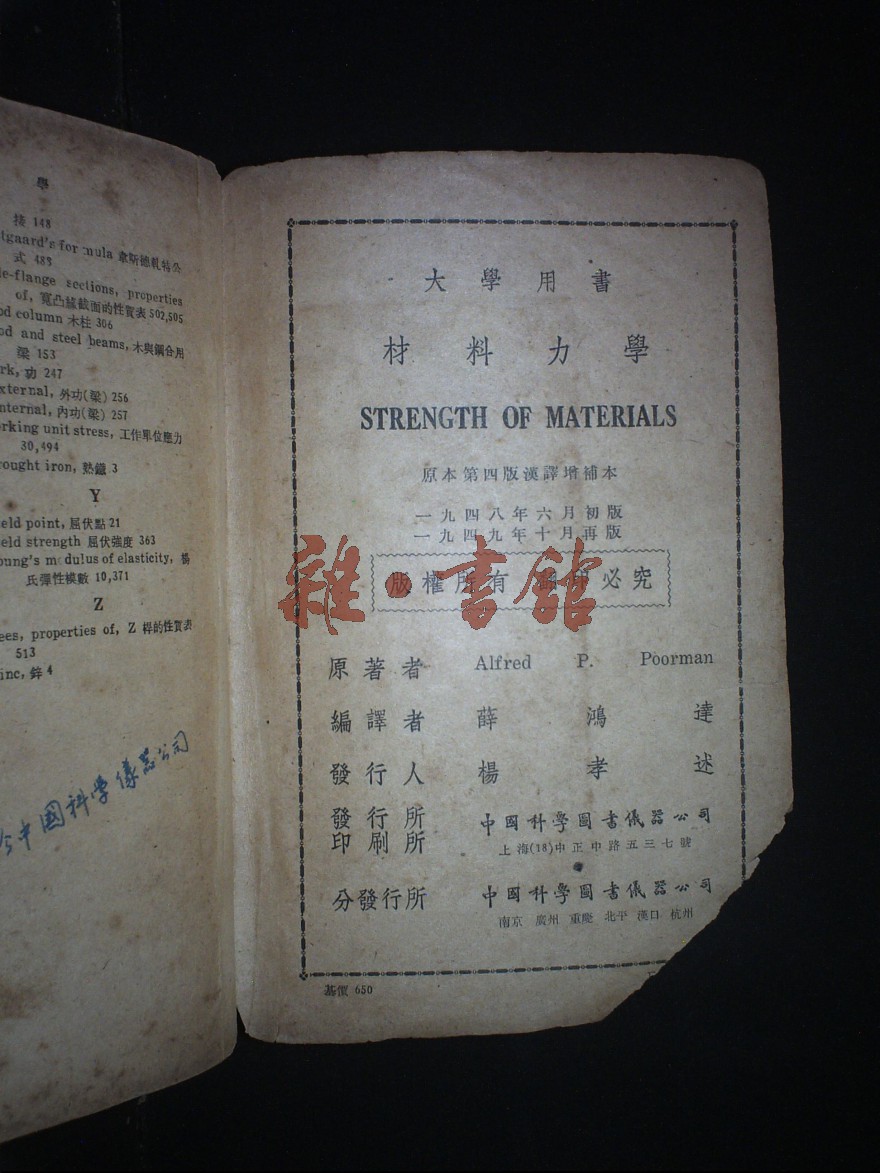 學
接 148
tgaard's formula 韋斯德軋特公
式 483
de-flange sections, properties
of, 寬凸緣截面的性質表 502,505
od column 木柱 306
od and steel beams, 木與鋼合用
梁 153
rk, 功 247
xternal, 外功(梁) 256
nternal, 內功(梁) 257
orking unit stress, 工作單位應力
30,494
rought iron, 熟鐵 3
Y
eld point, 屈伏點 21
eld strength 屈伏強度 363
oung's modulus of elasticity, 楊
氏彈性模數 10,371
Z
ees, properties of, Z 桿的性質表
513
inc, 鋅 4
中國科學儀器公司
大學用書
材料力學
STRENGTH OF MATERIALS
原本第四版漢譯增補本
一九四八年六月初版
一九四九年十月再版
版權所有 翻印必究
雜·書館
原著者 Alfred P. Poorman
編譯者 薛鴻達
發行人 楊孝述
發行所
印刷所
中國科學圖書儀器公司
上海(18)中正中路五三七號
分發行所 中國科學圖書儀器公司
南京 廣州 重慶 北平 漢口 杭州
基價 650